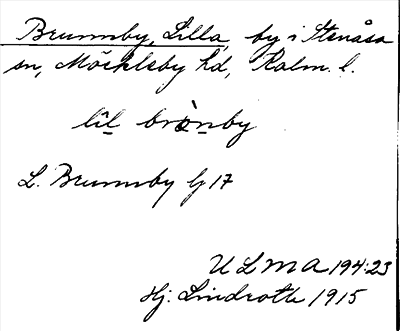 Brunnby, Lilla, by i Stenåsa
sn, Möckleby hd, Kalm. l.
lil brònby
L. Brunnby Gj 17
ULMA 194:23
Hj. Lindroth 1915